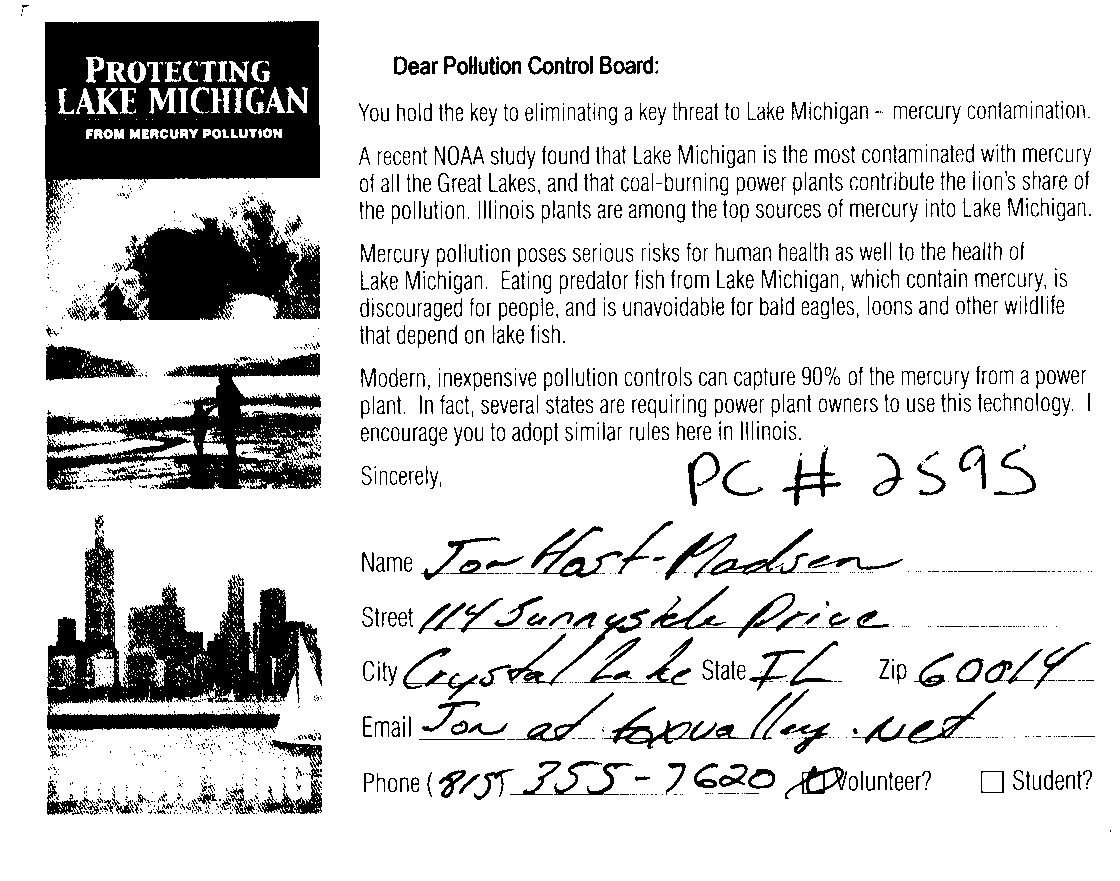 PROTECTING
LAKE MICHIGAN
FROM MERCURY POLLUTION
Dear Pollution Control Board:
You hold the key to eliminating a key threat to Lake Michigan – mercury contamination.
A recent NOAA study found that Lake Michigan is the most contaminated with mercury
of all the Great Lakes, and that coal-burning power plants contribute the lion's share of
the pollution. Illinois plants are among the top sources of mercury into Lake Michigan.
Mercury pollution poses serious risks for human health as well to the health of
Lake Michigan. Eating predator fish from Lake Michigan, which contain mercury, is
discouraged for people, and is unavoidable for bald eagles, loons and other wildlife
that depend on lake fish.
Modern, inexpensive pollution controls can capture 90% of the mercury from a power
plant. In fact, several states are requiring power plant owners to use this technology. I
encourage you to adopt similar rules here in Illinois.
Sincerely,
PC # 2595
Name Jon Hast-Madsen
Street 114 Sunnyside Drive
City Crystal Lake State IL Zip 60014
Email Jon at foxvalley.net
Phone (815) 355-7620 Volunteer? Student?